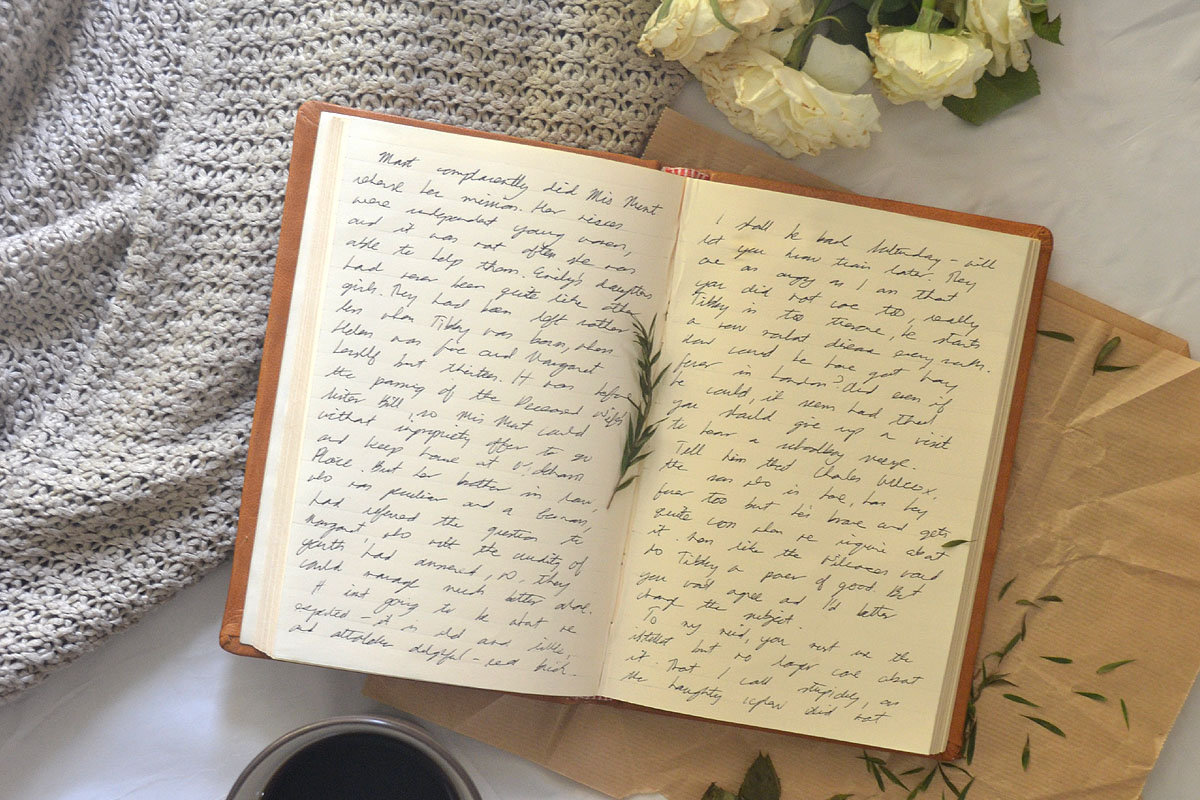 Most complacently did Mis Munt
rehearse her mission. Her nieces
were independent young women,
and it was not often she was
able to help them. Emily's daughters
had never been quite like other
girls. They had been left mother
less when Tibby was born, when
Helen was five and Margaret
herself but thirteen. It was before
the passing of the Deceased Wife's
Sister Bill, so Mis Munt could
without impropriety offer to go
and keep house at
Place. But her brother in law,
who was peculiar and a German,
had referred the question to
Margaret, who with the crudity of
youth had answered, no, they
could manage much better alone.
It isnt going to be what we
expected - it is old and little,
and altogether delightful - red brick.
I shall be back Saturday - will
let you know train later. They
are as angry as I am that
you did not come too, really
Tibby is too tiresome, he starts
a new mortal disease every month.
How could he have got hay
fever in London? And even if
he could, it seems hard that
you should give up a visit
to hear a schoolboy sneeze.
Tell him that Charles Wilcox,
the son who is here, has hay
fever too but he's brave and gets
quite cross when we inquire about
it. Men like the Wilcoxes would
do Tibby a power of good. But
you wont agree and I'd better
change the subject.
To my mind, you not use the
intellect but no longer care about
it. That I call stupidity, as
the haughty did not